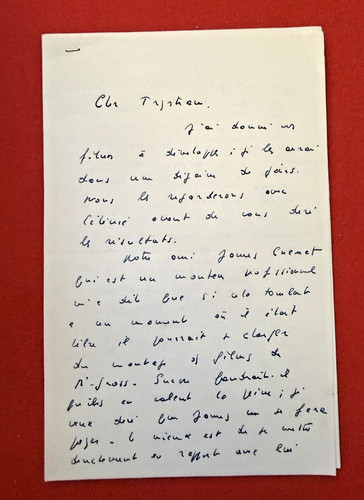 Cher Trystram.
J'ai donné vos
films à développer ; je les aurai
dans une dizaine de jours.
Nous les regarderons avec
avant de vous dire
les résultats.
Notre ami James Cuenet
qui est un monteur professionnel
m'a dit que si cela tombait
à un moment où il était
libre il pourrait se charger
du montage films de
Encore faudrait-il
qu'ils en valent la peine ; je
veux dire que James un se fera
payer. Le mieux est de se mettre
directement en rapport avec lui